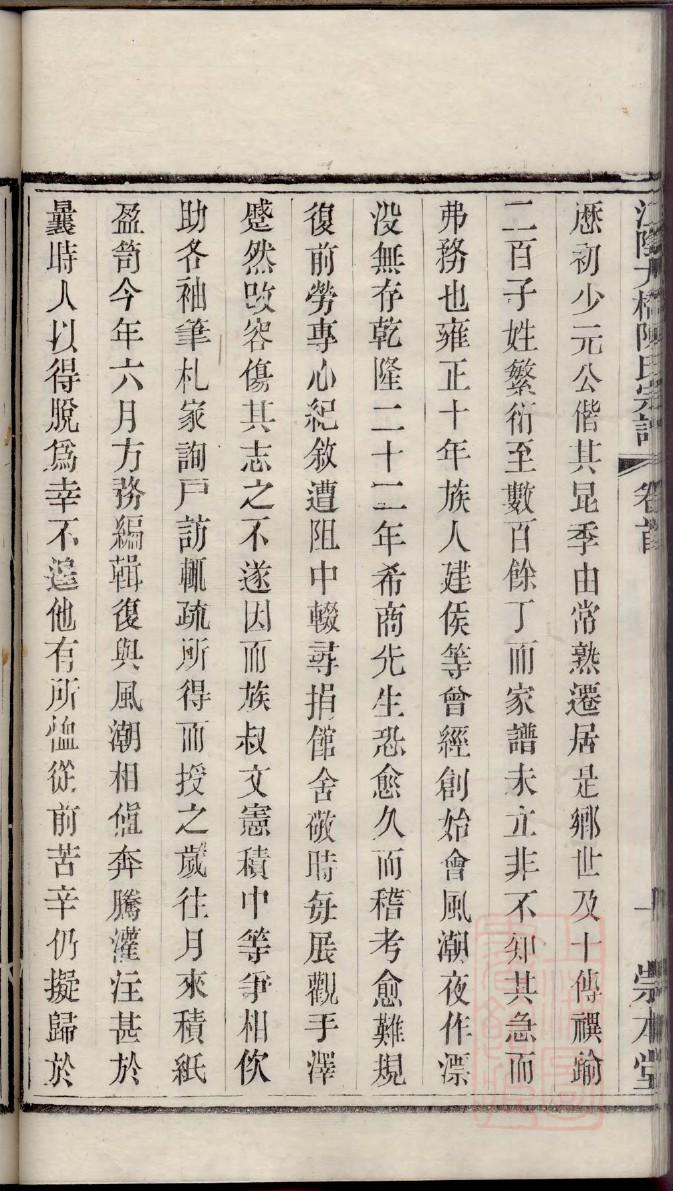 江陰大橋陳氏宗譜 卷首 一 崇本堂
歷初少元公偕其昆季由常熟遷居是鄉世及十傳禩踰
二百子姓繁衍至數百餘丁而家譜未立非不知其急而
弗務也雍正十年族人建侯等曾經創始會風潮夜作漂
沒無存乾隆二十二年希商先生恐愈久而稽考愈難規
復前勞專心紀敘遭阻中輟尋捐館舍敬時每展觀手澤
蹙然改容傷其志之不遂因而族叔文憲積中等爭相佽
助各袖筆札家詢戶訪輒疏所得而授之歲往月來積紙
盈笥今年六月方務編輯復與風潮相值奔騰灌注甚於
曩時人以得脫爲幸不遑他有所恤從前苦辛仍擬歸於